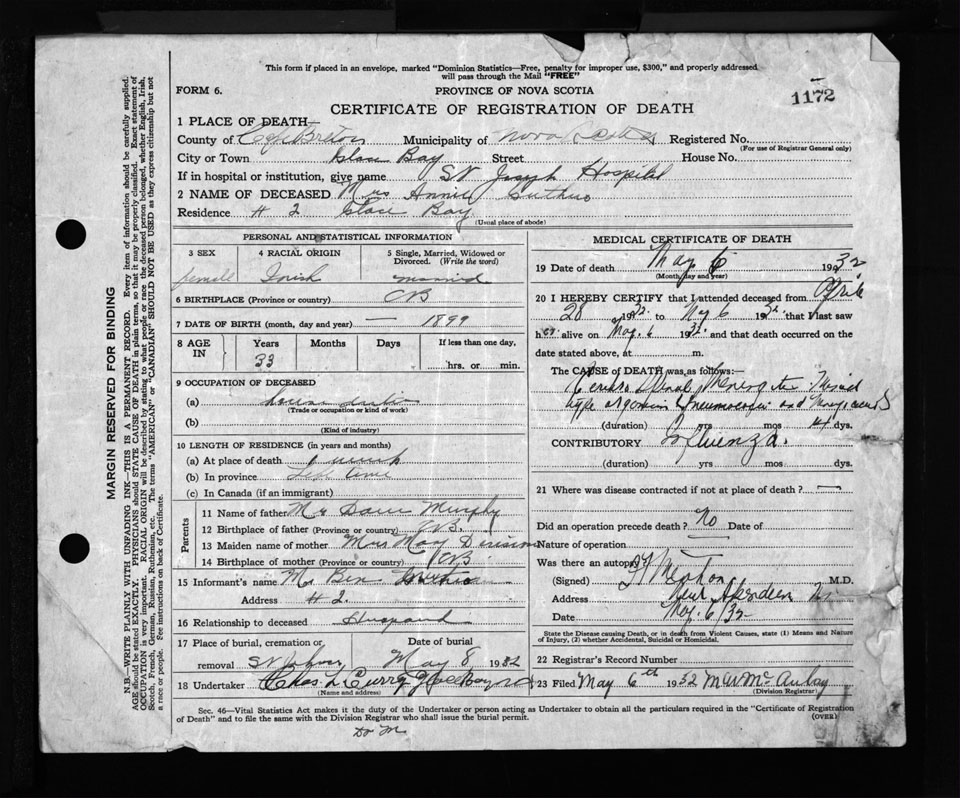 This form if placed in an envelope, marked "Dominion Statistics—Free, penalty for improper use, $300," and properly addressed
will pass through the Mail "FREE"
FORM 6.
PROVINCE OF NOVA SCOTIA
1172
CERTIFICATE OF REGISTRATION OF DEATH
1 PLACE OF DEATH
County of Cape Breton Municipality of Nova Scotia Registered No.
(For use of Registrar General only)
City or Town Glace Bay Street House No.
If in hospital or institution, give name St Joseph Hospital
2 NAME OF DECEASED Mrs Annie Guthro
Residence # 2 Glace Bay
(Usual place of abode)
PERSONAL AND STATISTICAL INFORMATION
3 SEX 4 RACIAL ORIGIN 5 Single, Married, Widowed or
Divorced. (Write the word)
female Irish married
6 BIRTHPLACE (Province or country) CB
7 DATE OF BIRTH (month, day and year) — 1899
8 AGE IN Years Months Days If less than one day,
33 hrs. or min.
9 OCCUPATION OF DECEASED
(a) house duties
(Trade or occupation or kind of work)
(b)
(Kind of industry)
10 LENGTH OF RESIDENCE (in years and months)
(a) At place of death
(b) In province Life time
(c) In Canada (if an immigrant)
Parents
11 Name of father Mr Murphy
12 Birthplace of father (Province or country) CB.
13 Maiden name of mother Mrs May
14 Birthplace of mother (Province or country) CB
15 Informant's name Mr Ben Guthro
Address # 2.
16 Relationship to deceased Husband
17 Place of burial, cremation or Date of burial
removal St Johns May 8 1932
18 Undertaker Chas L Curry Glace Bay
(Name and address)
MEDICAL CERTIFICATE OF DEATH
19 Date of death May 6 1932
(Month, day and year)
20 I HEREBY CERTIFY that I attended deceased from April
28 1932 to May 6 1932 that I last saw
her alive on May 6 1932 and that death occurred on the
date stated above, at m.
The CAUSE of DEATH was as follows:—
Cerebro Spinal Meningitis mixed
type organism Pneumococci and
(duration) yrs mos 14 dys.
CONTRIBUTORY Influenza.
(duration) yrs mos dys.
21 Where was disease contracted if not at place of death? —
Did an operation precede death? No Date of
Nature of operation
Was there an autopsy?
(Signed) M.D.
Address New Aberdeen
Date May 6/32
State the Disease causing Death, or in death from Violent Causes, state (1) Means and Nature
of Injury, (2) whether Accidental, Suicidal or Homicidal.
22 Registrar's Record Number
23 Filed May 6th 1932 McAulay
(Division Registrar)
Sec. 46—Vital Statistics Act makes it the duty of the Undertaker or person acting as Undertaker to obtain all the particulars required in the "Certificate of Registration
of Death" and to file the same with the Division Registrar who shall issue the burial permit.
(OVER)
Dr M.
MARGIN RESERVED FOR BINDING
N.B—WRITE PLAINLY WITH UNFADING INK—THIS IS A PERMANENT RECORD. Every item of information should be carefully supplied.
AGE should be stated EXACTLY. PHYSICIANS should STATE CAUSE OF DEATH in plain terms, so that it may be properly classified. Exact statement of
OCCUPATION is very important. RACIAL ORIGIN will be described by stating to what people or race the deceased person belonged, whether English, Irish,
Scotch, French, German, Russian, Ruthenian, etc. The terms "AMERICAN" or "CANADIAN" SHOULD NOT BE USED as they express citizenship but not
a race or people. See instructions on back of Certificate.